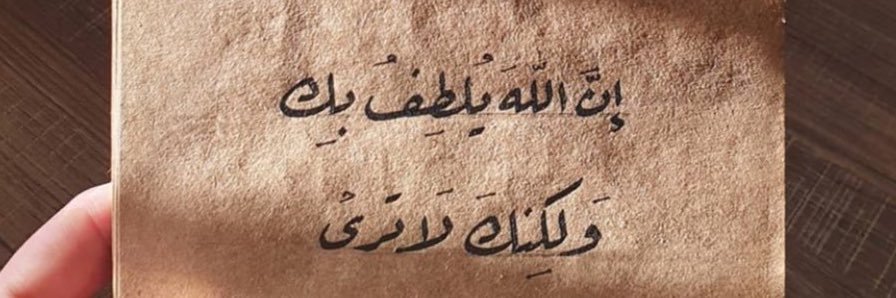 إِنَّ اللَّهَ يُلطِفُ بِك
وَلكِنكَ لَا ترىٰ